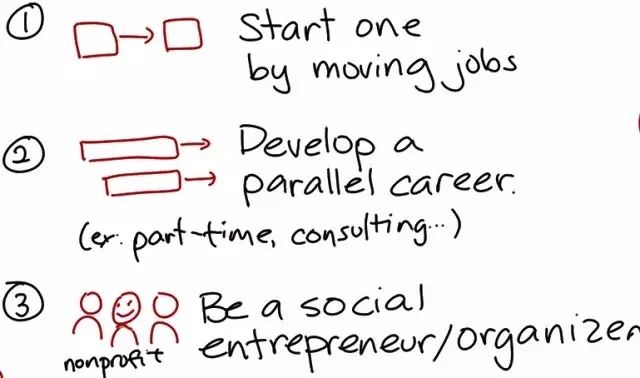 1 Start one
by moving jobs
2 Develop a
parallel career.
(ex: part-time, consulting...)
3 Be a social
nonprofit entrepreneur/organizer